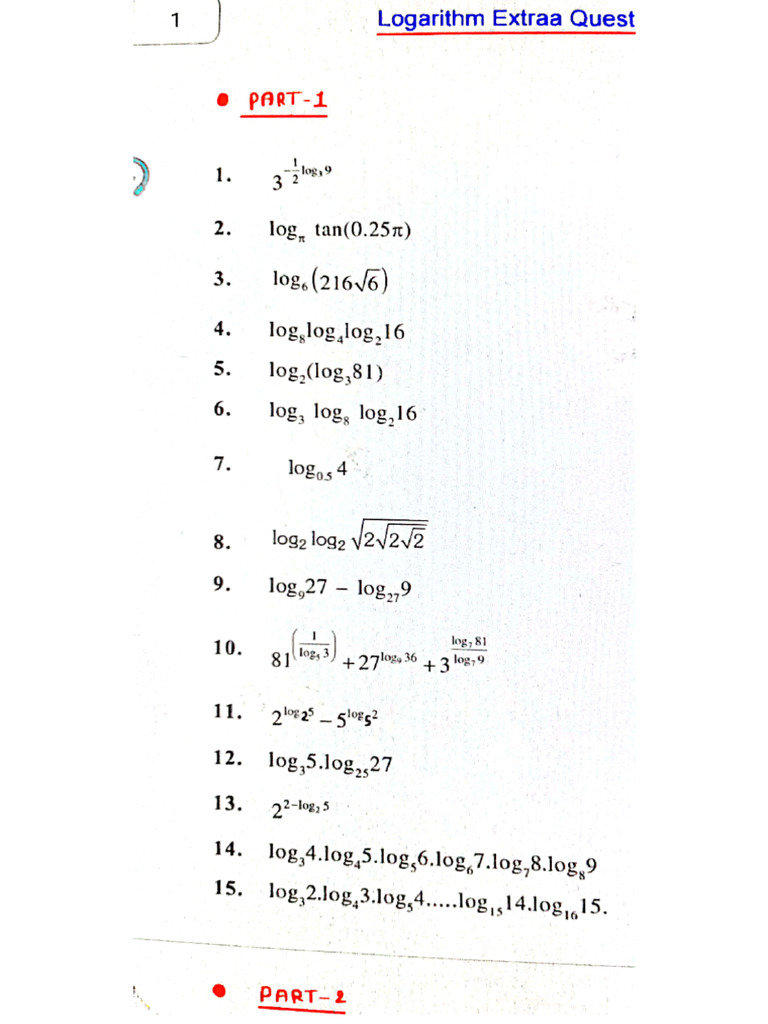 1
Logarithm Extraa Quest
• PART-1
1. 3^(-1/2 log₃9)
2. log_π tan(0.25π)
3. log₆(216√6)
4. log₈log₄log₂16
5. log₂(log₃81)
6. log₃ log₈ log₂16
7. log₀.₅ 4
8. log₂ log₂ √(2√(2√2))
9. log₉27 – log₂₇9
10. 81^(1/log₅3) + 27^(log₉36) + 3^(log₇81/log₇9)
11. 2^(log₂5) – 5^(log₅2)
12. log₃5.log₂₅27
13. 2^(2–log₂5)
14. log₃4.log₄5.log₅6.log₆7.log₇8.log₈9
15. log₃2.log₄3.log₅4.....log₁₅14.log₁₆15.
• PART-2